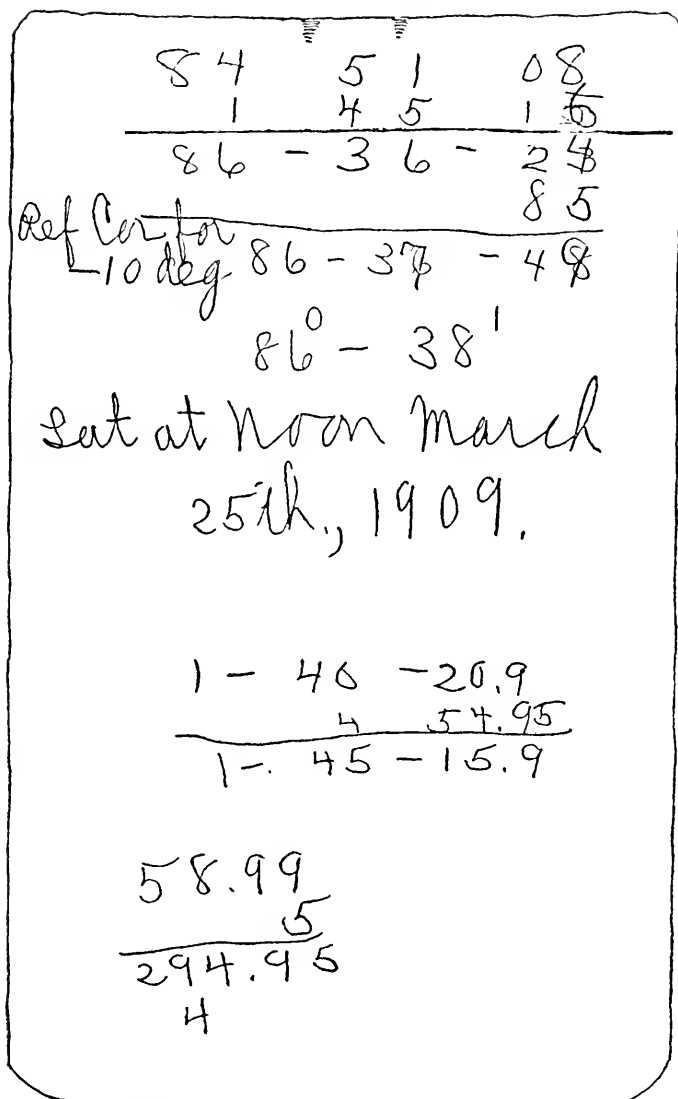 84 51 08
1 45 16
86 - 36 - 24
85
Ref Cor for
-10 deg 86 - 37 - 49
86° - 38'
Lat at noon March
25th., 1909.
1 - 40 - 20.9
4 54.95
1 - 45 - 15.9
58.99
5
294.95
4